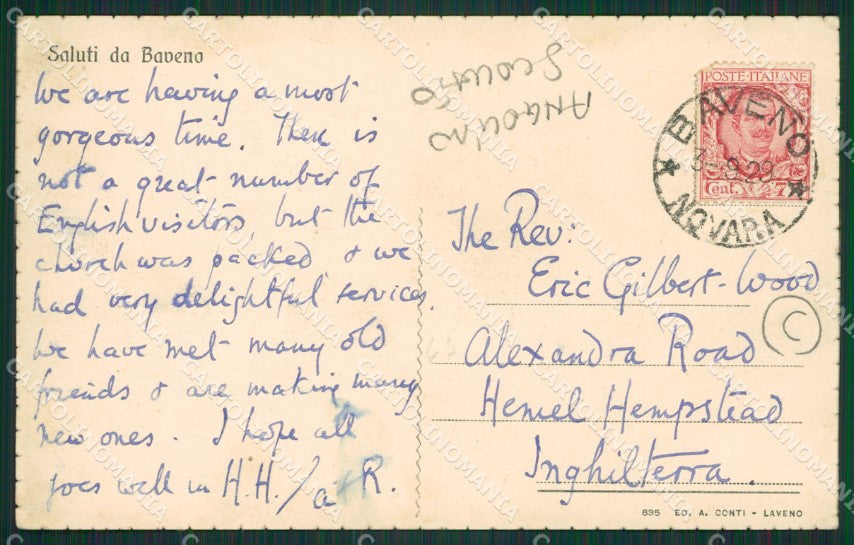 Saluti da Baveno
We are having a most
gorgeous time. There is
not a great number of
English visitors, but the
church was packed & we
had very delightful services.
We have met many old
friends & are making many
new ones. I hope all
goes well in H.H./ R.
ANGOLINO
SCOLLATO
POSTE·ITALIANE
Cent. 75
BAVENO
3-9.29
NOVARA
The Rev:
Eric Gilbert-Wood
Alexandra Road
Hemel Hempstead
Inghilterra.
C
635 ED. A. CONTI - LAVENO
CARTOLINOMANIA